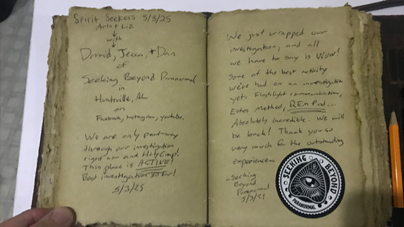 Spirit Seekers 3/3/25
with
David, Jesse, + Dan
of
Seeking Beyond Paranormal
in
Huntsville, AL
on
Facebook, Instagram, youtube.
We are only partway
through our investigation
right now and Holy Crap!
This place is ACTIVE!
Best investigation so far!
3/3/25
We just wrapped our
investigation, and all
we have to say is WOW!
Some of the best activity
we've had on an investigation
yet. Flashlight communication,
Estes Method, REM Pod...
Absolutely incredible. We will
be back! Thank you so
very much for the outstanding
experience.
- Seeking
Beyond
Paranormal
3/3/25
SEEKING BEYOND
PARANORMAL